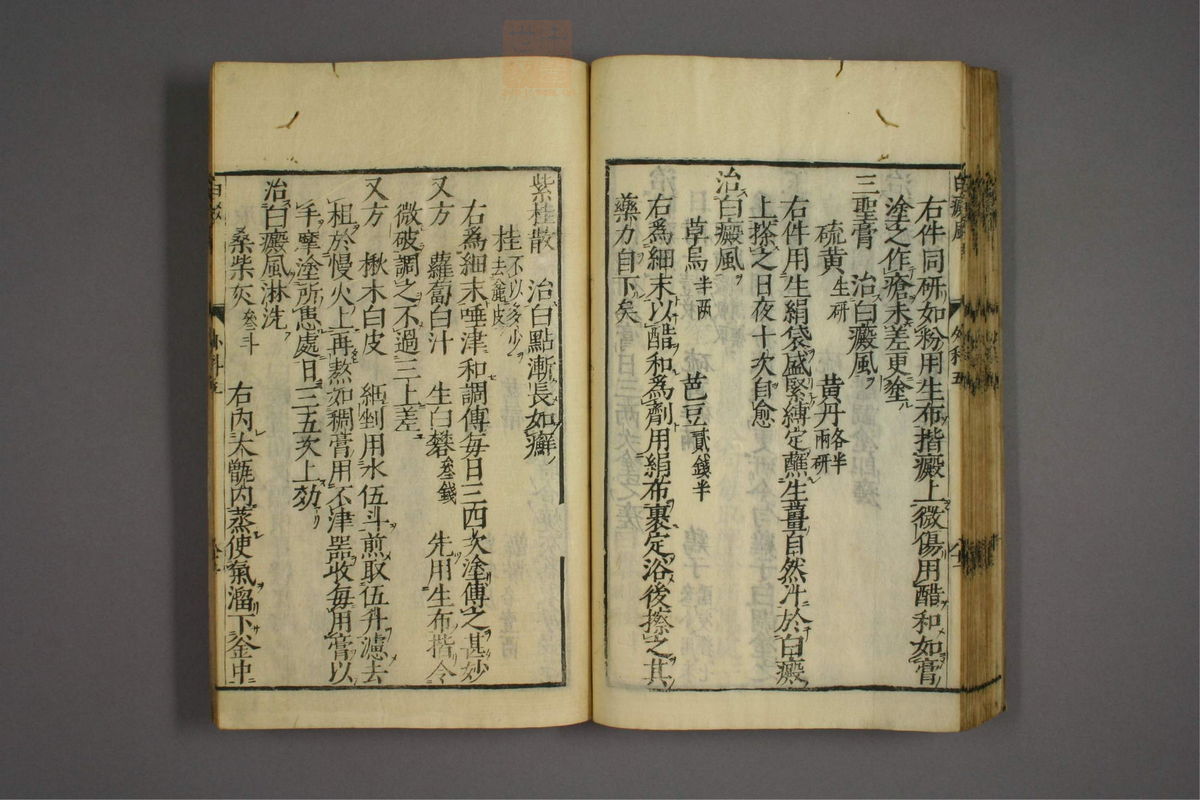 右件同研如粉用生布揩癜上微傷用醋和如膏
塗之作瘡未差更塗
三聖膏 治白癜風
硫黄生研 黄丹各半兩研
右件用生絹袋盛緊縛定蘸生薑自然汁於白癜
上搽之日夜十次自愈
治白癜風
草烏半两 芭豆貳錢半
右為細末以醋和為劑用絹布裹定浴後擦之其
藥力自下矣
紫桂散 治白點漸長如癬
桂不以多少去麄皮
右為細末唾津和調傅每日三四次塗傅之甚妙
又方 蘿蔔白汁 生白礬叄錢 先用生布揩令
微破調之不過三上差
又方 楸木白皮 細剉用水伍斗煎取伍升濾去
柤於慢火上再熬如稠膏用不津器收每用膏以
手摩塗所患處日三五次上効
治白癜風淋洗
桑柴灰叄斗 右內大甑內蒸使氣溜下釜中
白癜風
外科五